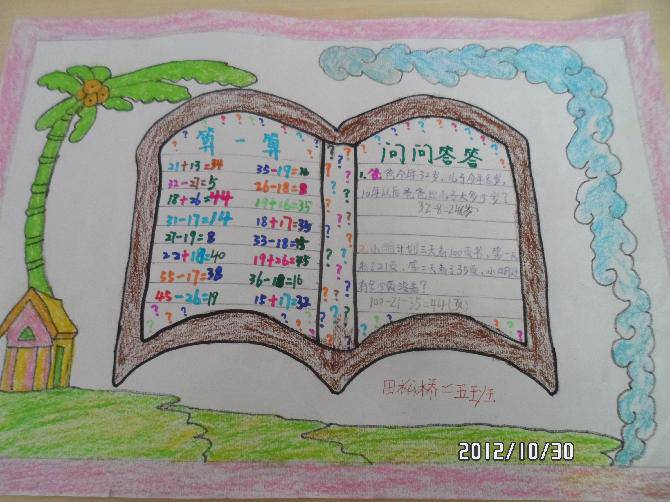 算一算
21+13=34
35-19=16
32-27=5
26-18=8
18+26=44
19+16=35
31-17=14
18+17=35
27-19=8
33-18=15
22+18=40
19+26=45
55-17=38
36-18=16
45-26=19
15+17=32
问问答答
1.爸爸今年32岁,儿子今年8岁,
10年以后爸爸比儿子大多少岁?
32-8=24(岁)
2.小明计划三天看100页书,第一天
看了21页,第二天看了35页,
100-21-35=44(页)
2012/10/30